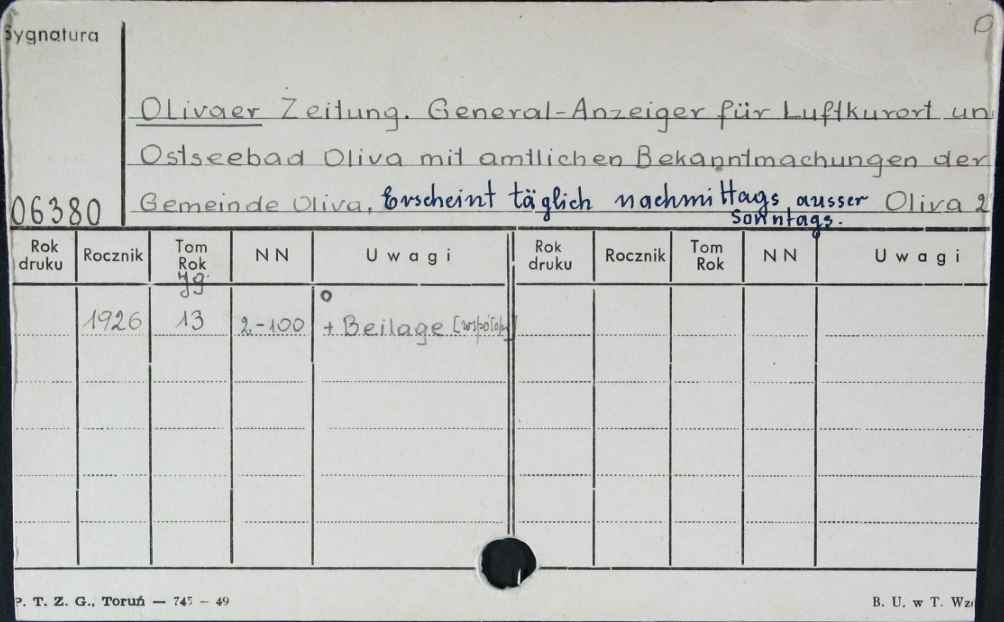 Sygnatura
O
Olivaer Zeitung. General-Anzeiger für Luftkurort un
Ostseebad Oliva mit amtlichen Bekanntmachungen der
06380 Gemeinde Oliva. Erscheint täglich nachmittags ausser Oliva 2
Sonntags.
Rok druku Rocznik Tom Rok NN Uwagi Rok druku Rocznik Tom Rok NN Uwagi
Jg.
1926 13 2-100 + Beilage
P. T. Z. G., Toruń — 745 – 49 B. U. w T. Wz